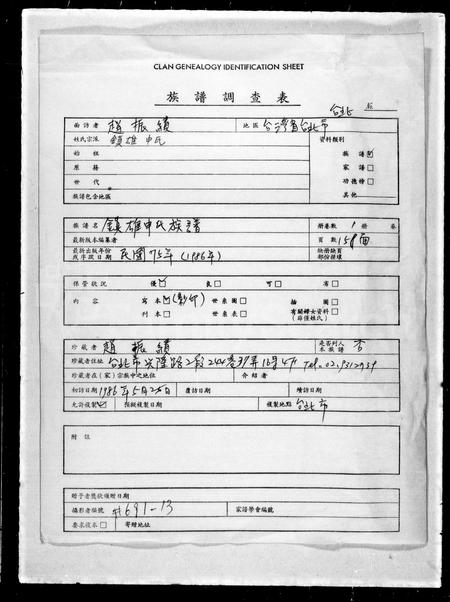 CLAN GENEALOGY IDENTIFICATION SHEET
族譜調查表
台北
面訪者 趙振績 地區 台灣省台北市
姓氏宗派 鎮雄申氏 資料類別
始祖 族譜☑
原籍 家譜□
世代 功德榜□
族譜包含地區 其他
族譜名 鎮雄申氏族譜 冊卷數 1 冊 卷
最新版本編纂者 頁數 158面
最新出版年份或序跋日期 民國75年(1986年) 缺冊缺頁部份採壞
保管狀況 優☑ 良□ 可□ 劣□
內容 寫本☑(影印) 世系圖□ 插圖□
刊本□ 世系表□ 有關婦女資料(非僅姓氏)□
珍藏者 趙振績 是否列入本族譜 否
珍藏者住址 台北市興隆路2段244巷39弄16号4F Tel.02.9312939
珍藏者在(家)宗族中之地位 介紹者
初訪日期 1986年5月25日 覆訪日期 續訪日期
允許複製☑ 指擬複製日期 複製地點 台北市
附註
贈予者獎狀頒贈日期
攝影者編號 #691-13 家譜學會編號
要求複本□ 寄贈地址